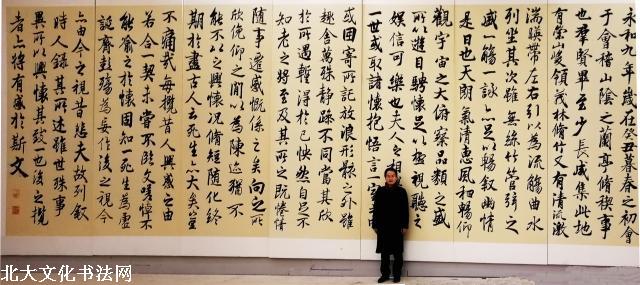 永和九年歲在癸丑暮春之初會
于會稽山陰之蘭亭脩禊事
也群賢畢至少長咸集此地
有崇山峻領茂林脩竹又有清流激
湍暎帶左右引以為流觴曲水
列坐其次雖無絲竹管弦之
盛一觴一詠亦足以暢叙幽情
是日也天朗氣清惠風和暢仰
觀宇宙之大俯察品類之盛
所以遊目騁懷足以極視聽之
娛信可樂也夫人之相
一世或取諸懷抱悟言一室
或因寄所託放浪形骸之外雖
趣舍萬殊靜躁不同當其欣
於所遇蹔得於己快然自足不
知老之將至及其所之既惓情
隨事遷感慨係之矣向之所
欣俛仰之間以為陳迹猶不
能不以之興懷況脩短隨化終
期於盡古人云死生亦大矣豈
不痛哉每攬昔人興感之由
若合一契未嘗不臨文嗟悼不
能喻之於懷固知一死生為虛
誕齊彭殤為妄作後之視今
亦由今之視昔悲夫故列敘
時人錄其所述雖世殊事
異所以興懷其致一也後之攬
者亦將有感於斯文
北大文化书法网